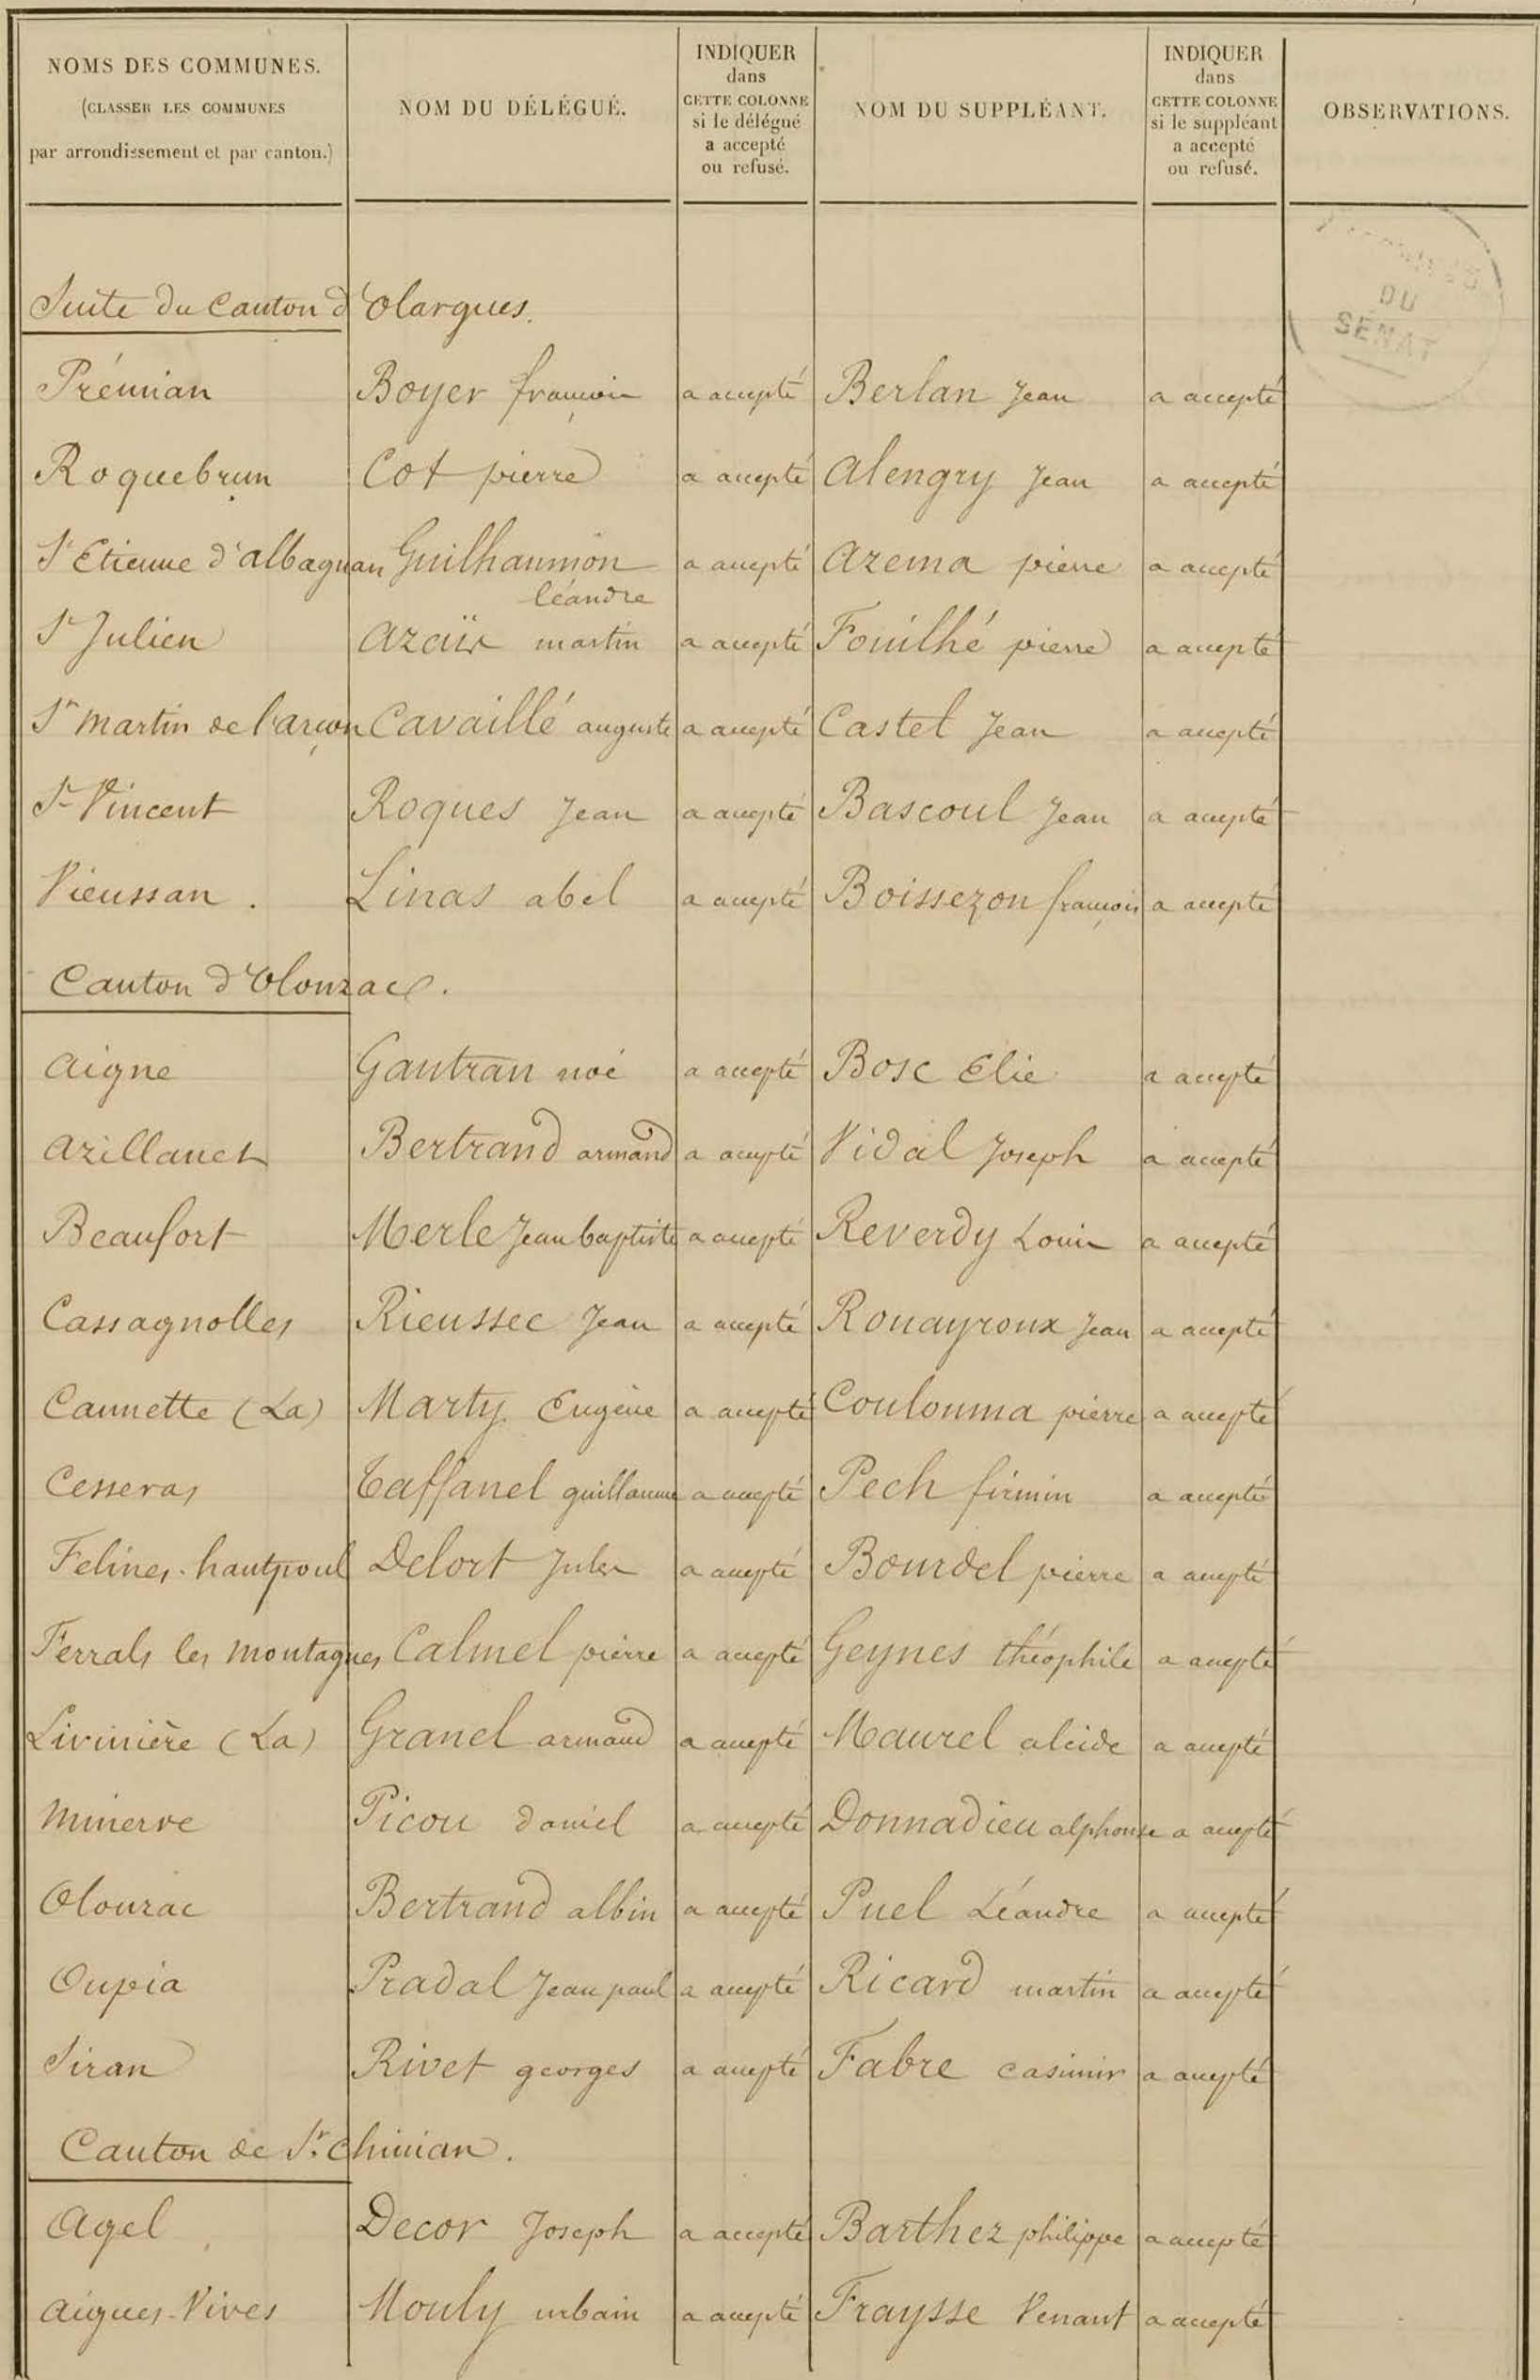 NOMS DES COMMUNES.
(CLASSER LES COMMUNES
par arrondissement et par canton.)
NOM DU DÉLÉGUÉ.
INDIQUER
dans
CETTE COLONNE
si le délégué
a accepté
ou refusé.
NOM DU SUPPLÉANT.
INDIQUER
dans
CETTE COLONNE
si le suppléant
a accepté
ou refusé.
OBSERVATIONS.
DU
SÉNAT
Suite du Canton d'Olargues.
Prémian Boyer françois a accepté Berlan Jean a accepté
Roquebrun Cot pierre a accepté Alengry Jean a accepté
St Etienne d'albagnan Guilhaumon léandre a accepté Azema pierre a accepté
St Julien Azaïs martin a accepté Fouilhé pierre a accepté
St martin de l'arçon Cavaillé auguste a accepté Castel Jean a accepté
St Vincent Roques Jean a accepté Bascoul Jean a accepté
Vieussan. Linas abel a accepté Boissezon françois a accepté
Canton d'Olonzac.
Aigne Gautran noé a accepté Bosc Elie a accepté
Azillanet Bertrand armand a accepté Vidal Joseph a accepté
Beaufort Merle Jean baptiste a accepté Reverdy Louis a accepté
Cassagnolles Rieussec Jean a accepté Rouayroux Jean a accepté
Caunette (La) Marty Eugène a accepté Coulouma pierre a accepté
Cesseras Taffanel guillaume a accepté Pech firmin a accepté
Felines-hautpoul Delort Jules a accepté Bourdel pierre a accepté
Ferrals les montagnes Calmel pierre a accepté Geynes théophile a accepté
Livinière (La) Granel armand a accepté Maurel alcide a accepté
Minerve Picou daniel a accepté Donnadieu alphonse a accepté
Olonzac Bertrand albin a accepté Puel Léandre a accepté
Oupia Pradal Jean paul a accepté Ricard martin a accepté
Siran Rivet georges a accepté Fabre casimir a accepté
Canton de St. Chinian.
Agel Decor Joseph a accepté Barthez philippe a accepté
Aigues-Vives Mouly urbain a accepté Fraysse Venant a accepté